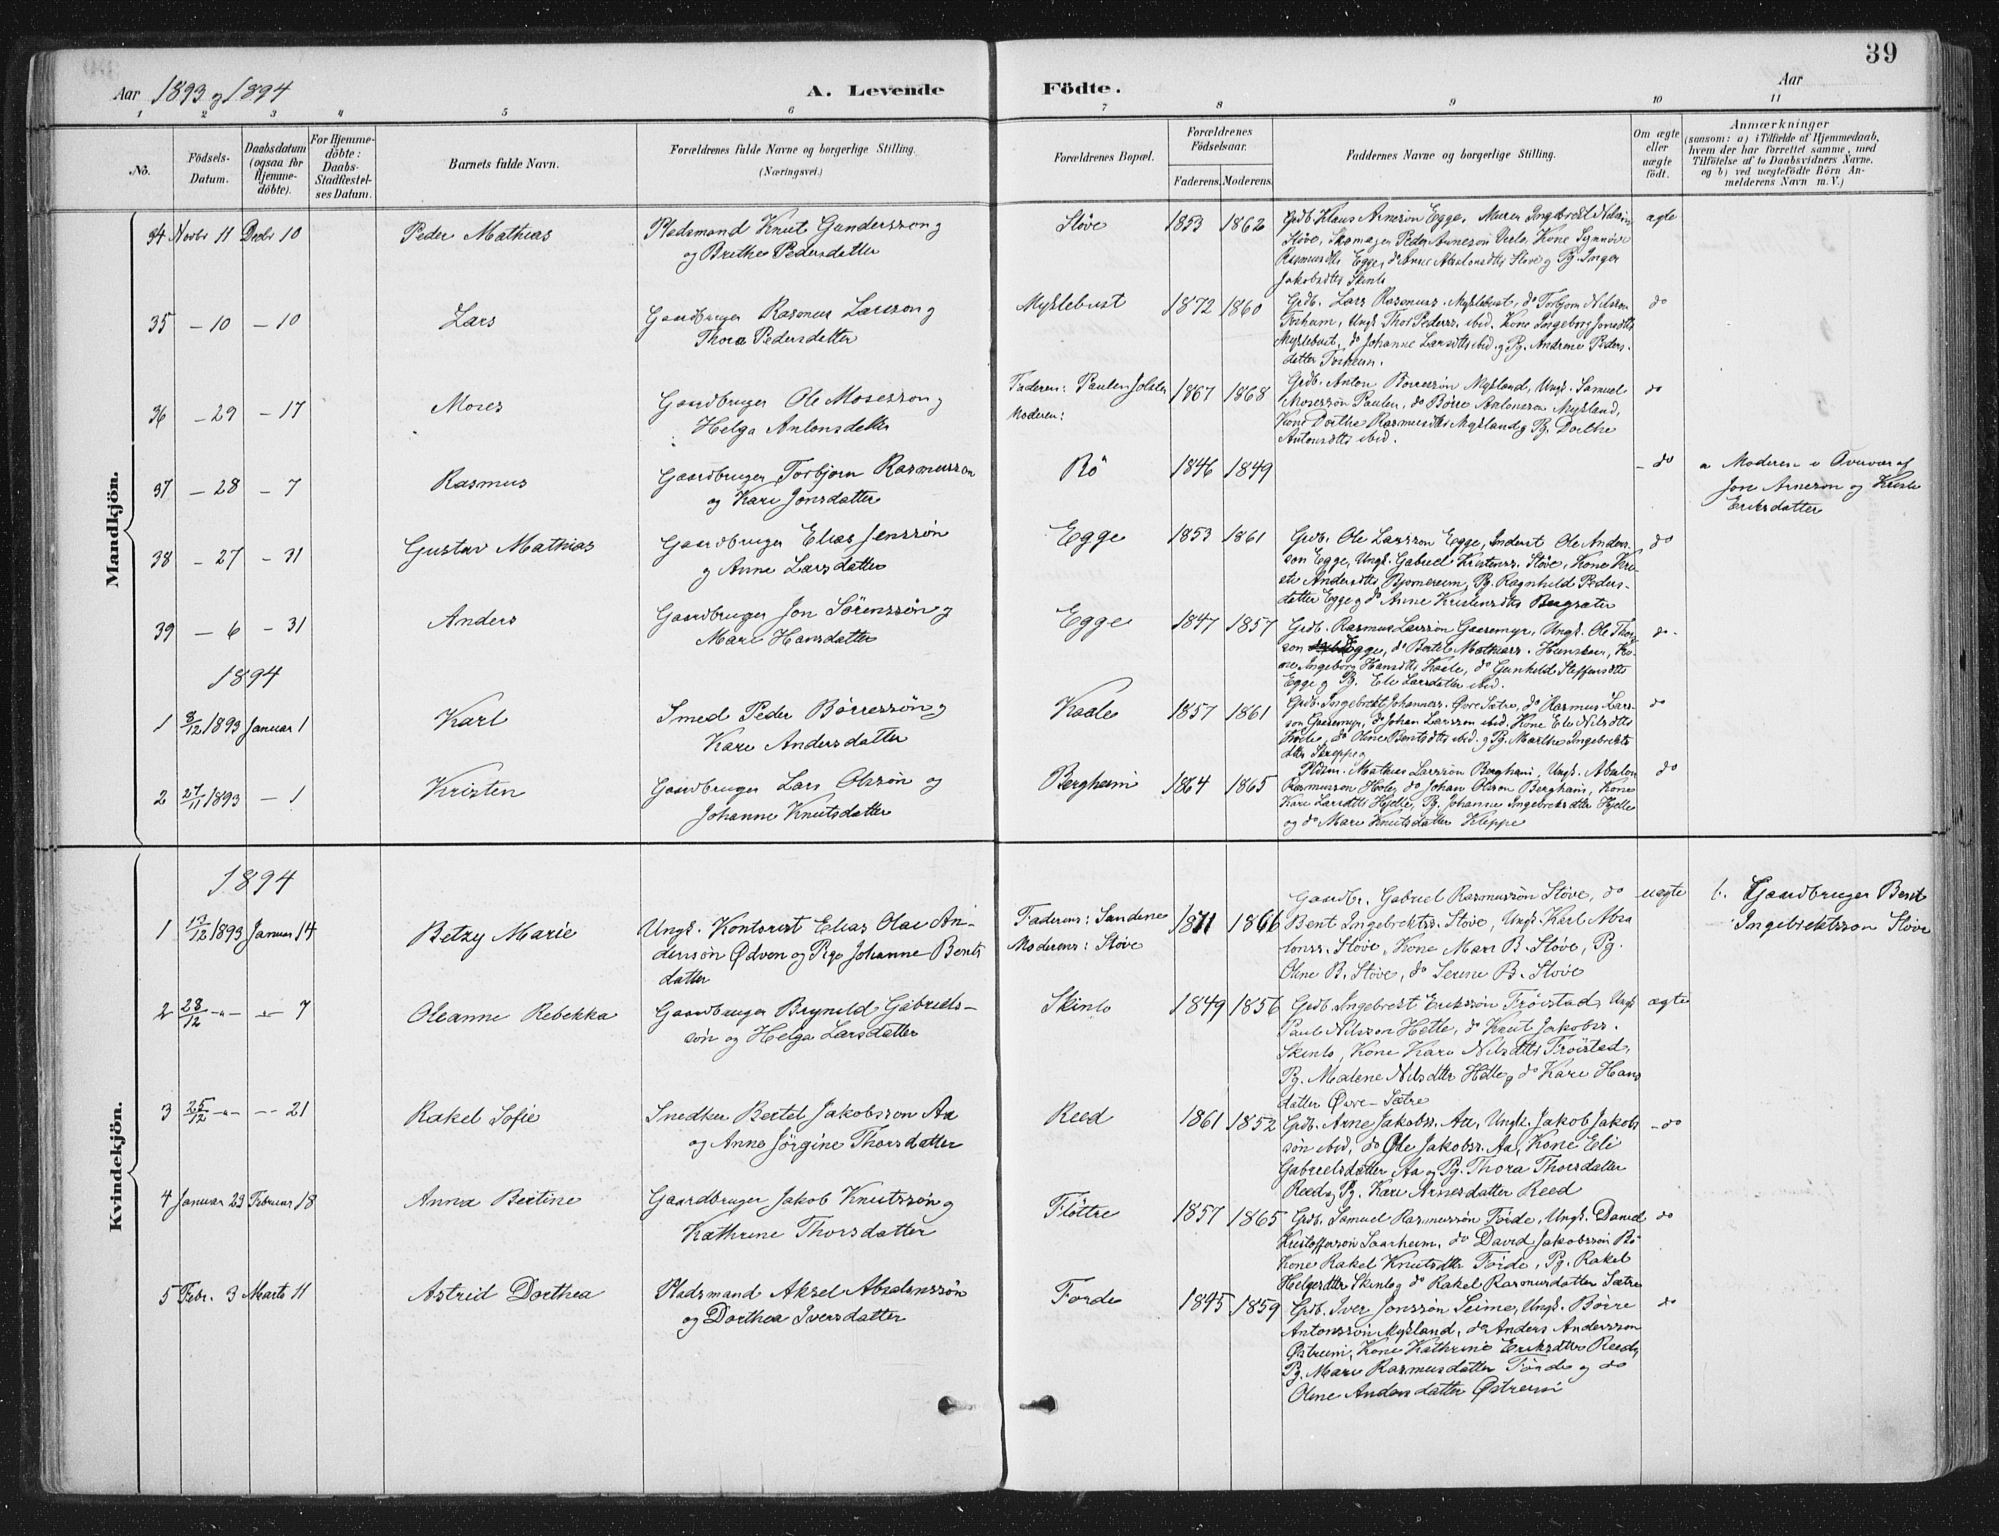 39
Aar 1893 og 1894
A. Levende Födte.
Aar
1 2 3 4 5 6 7 8 9 10 11
No.
Födsels-Datum.
Daabsdatum (ogsaa for Hjemme-döbte).
For Hjemme-döbte: Daabs-Stadfæstel-ses Datum.
Barnets fulde Navn.
Forældrenes fulde Navne og borgerlige Stilling. (Næringsvei.)
Forældrenes Bopæl.
Forældrenes Födselsaar.
Faderens. Moderens.
Faddernes Navne og borgerlige Stilling.
Om ægte eller uægte födt.
Anmærkninger
(saasom: a) i Tilfælde af Hjemmedaab, hvem der har forrettet samme, med Tilföielse af to Daabsvidners Navne, og b) ved uægtefödte Börn An-melderens Navn m. V.)
Mandkjön.
34 Novbr 11 Decbr 10 Peder Mathias
Pladsmand Knut Gunderssøn og
og Brithe Pedersdatter
Støve 1853 1862
Grdb. Klaus Arnesøn Egge, Murer Ingebrekt Nilssøn
Støve, Skomager Peder Arnesøn Kone Synnøve
Rasmusdtr Egge, do Anne Absalonsdtr Støve og Pg. Inger
Jakobsdtr Skinlo
ægte
35 — 10 — 10 Lars
Gaardbruger Rasmus Larsson og
Thora Pedersdatter
Myklebust 1872 1860
Grdb. Lars Rasmuss. Myklebust, do Torbjørn Nilsson
Forheim, Ungk. Thor Pederss. ibid. Kone Ingeborg Jonsdtr
Myklebust, do Johanne Larsdtr ibid. og Pg. Andrene Peders-
datter Forheim.
do
36 — 29 — 17 Moses
Gaardbruger Ole Mosesson og
Helga Antonsdatter
Faderen: Paulen Jølster
Moderen:
1867 1868
Grdb. Anton Børresøn Mykland, Ungk. Samuel
Mosessøn Paulen, do Børre Antonssøn Mykland,
Kone Dorthe Rasmusdtr Mykland og Pg. Dorthe
Antonsdtr ibid.
do
37 — 28 — 7 Rasmus
Gaardbruger Torbjørn Rasmusson
og Kari Jonsdatter
Rö 1846 1849
— do
a Moderen i Overvær af
Jon Arnesøn og
Eriksdatter
38 — 27 — 31 Gustav Mathias
Gaardbruger Elias Jenssøn
og Anne Larsdatter
Egge 1853 1861
Grdb. Ole Larssøn Egge, Inderst Ole Anders-
son Egge, Ungk. Gabriel Kristenss. Støve, Kone Kri-
sti Andersdtr Bjømereim, Pg. Ragnhild Peders-
datter Egge og do Anne Kristensdtr Bergsæter
do
39 — 6 — 31 Anders
Gaardbruger Jon Sørenssøn og
Mari Hansdatter
Egge 1847 1857
Grdb. Rasmus Larssøn Gaasemyr, Ungk. Ole Thor-
son Egge, do Bertel Mathiass. Hunskaar, Ko-
ne Ingeborg Hansdtr Kaale, do Gunhild Steffensdtr
Egge og Pg. Eli Larsdatter ibid.
do
1894
1 8/12 1893 Januar 1 Karl
Smed Peder Børressøn og
Kari Andersdatter
Kaale 1857 1861
Grdb. Ingebrekt Johanness. Øvre Sætre, do Rasmus Lars-
son Gaasemyr, do Johan Larsson ibid. Kone Eli Nilsdtr
Kaale, do Oline Bentsdtr ibid. og Pg. Marthe Ingebrekts-
datter
do
2 27/11 1893 — 1 Kristen
Gaardbruger Lars Olssøn og
Johanne Knutsdatter
Bergheim 1864 1865
Pldsm. Mathias Larssøn Bergheim, Ungk. Absalon
Rasmusson Hole, do Johan Olsson Bergheim, Kone
Kari Larsdtr Hjelle, Pg. Johanne Ingebrektsdtter Hjelle
og do Mari Knutsdatter Kleppe
do
Kvindekjön.
1894
1 17/12 1893 Januar 14 Betzy Marie
Ungk. Kontorist Elias Olai An-
denssøn Ødven og Pige Johanne Bents
datter
Faderens: Sandene
Moderens: Støve
1871 1866
Gaardbr. Gabriel Rasmussøn Støve, do
Bent Ingebrektss. Støve, Ungk. Karl Absa-
lonss. Støve, Kone Mari B. Støve, Pg.
Oline B. Støve, do Serine B. Støve
uægte
b. Gaardbruger Bent
Ingebrektsson Støve
2 28/12 —„— —„— 7 Oleanne Rebekka
Gaardbruger Brynild Gabriels-
søn og Helga Larsdatter
Skinlo 1849 1856
Grdb. Ingebrekt Erikssøn Trøistad, Ungk
Paul Nilsson Hetle, do Knut Jakobss.
Skinlo, Kone Kari Nilsdtr Trøistad,
Pg. Malene Nilsdtter Hetle og do Kari Hans
datter Øvre-Sætre
ægte
3 25/12 —„— — 21 Rakel Sofie
Snedker Bertel Jakobsson Aa
og Anne Jørgine Thorsdatter
Reed 1861 1852
Grdb. Arne Jakobss. Aa, Ungk. Jakob Jakobs
søn ibid, do Ole Jakobss. Aa, Kone Eli
Gabrielsdatter Aa og Pg. Thora Thorsdatter
Reed og Pg. Kari Arnesdatter Reed
— do
4 Januar 23 Februar 18 Anna Bertine
Gaardbruger Jakob Knutssøn og
Kathrine Thorsdatter
Fløttre 1857 1865
Grdb. Samuel Rasmussøn Førde, Ungk. Daniel
Kristofferson Saarheim, do David Jakobssøn Rö
Kone Rakel Knutsdtr Førde, Pg. Rakel
Helgesdtr Skinlo og do Rakel Rasmusdatter Sætre
do
5 Febr. 3 Marts 11 Astrid Dorthea
Pladsmand Aksel Absalonssøn
og Dorthea Iversdatter
Førde 1845 1859
Grdb. Iver Jonssøn Seime, Ungk. Børre
Antonssøn Mykland, do Anders Andersson
Østreim, Kone Kathrine Eriksdtter Reed,
Pg. Mari Rasmusdatter Førde og do
Oline Andersdatter Østreim
do